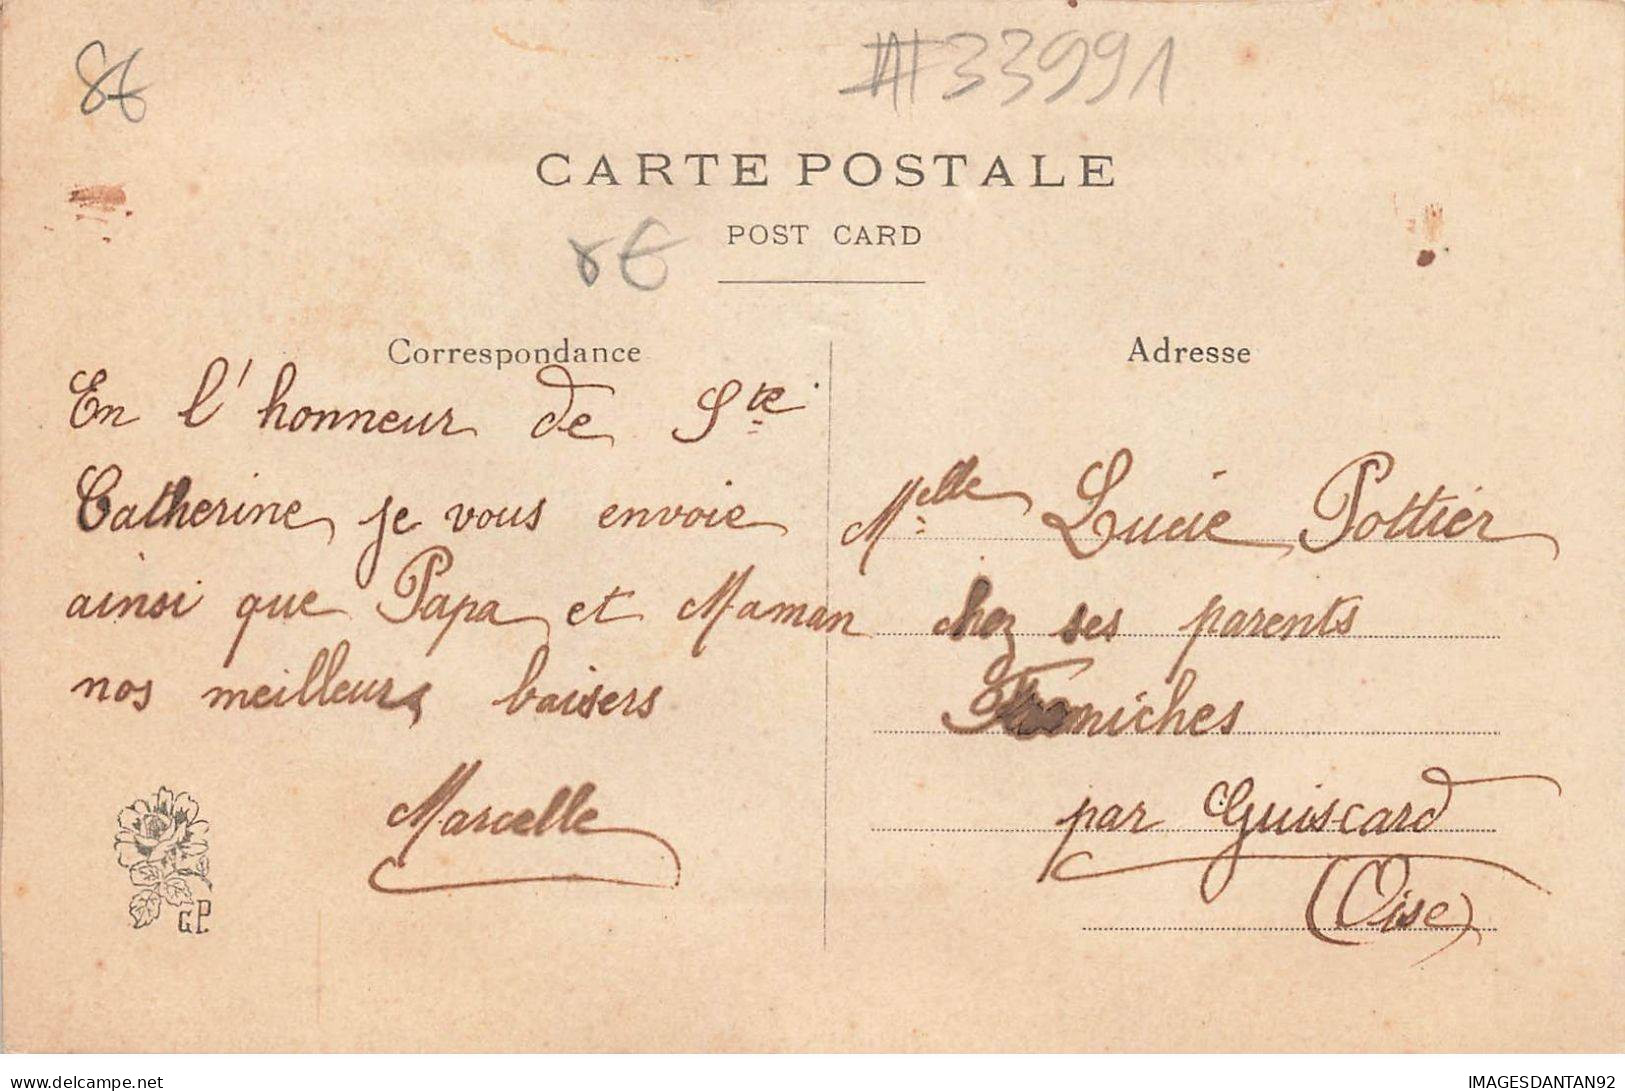 8€
#33991
CARTE POSTALE
POST CARD
8€
Correspondance
En l'honneur de Ste
Catherine je vous envoie
ainsi que Papa et Maman
nos meilleurs baisers
Marcelle
G.P.
Adresse
Melle Lucie Pottier
chez ses parents
Freniches
par Guiscard
(Oise)
delcampe.net
IMAGESDANTAN92